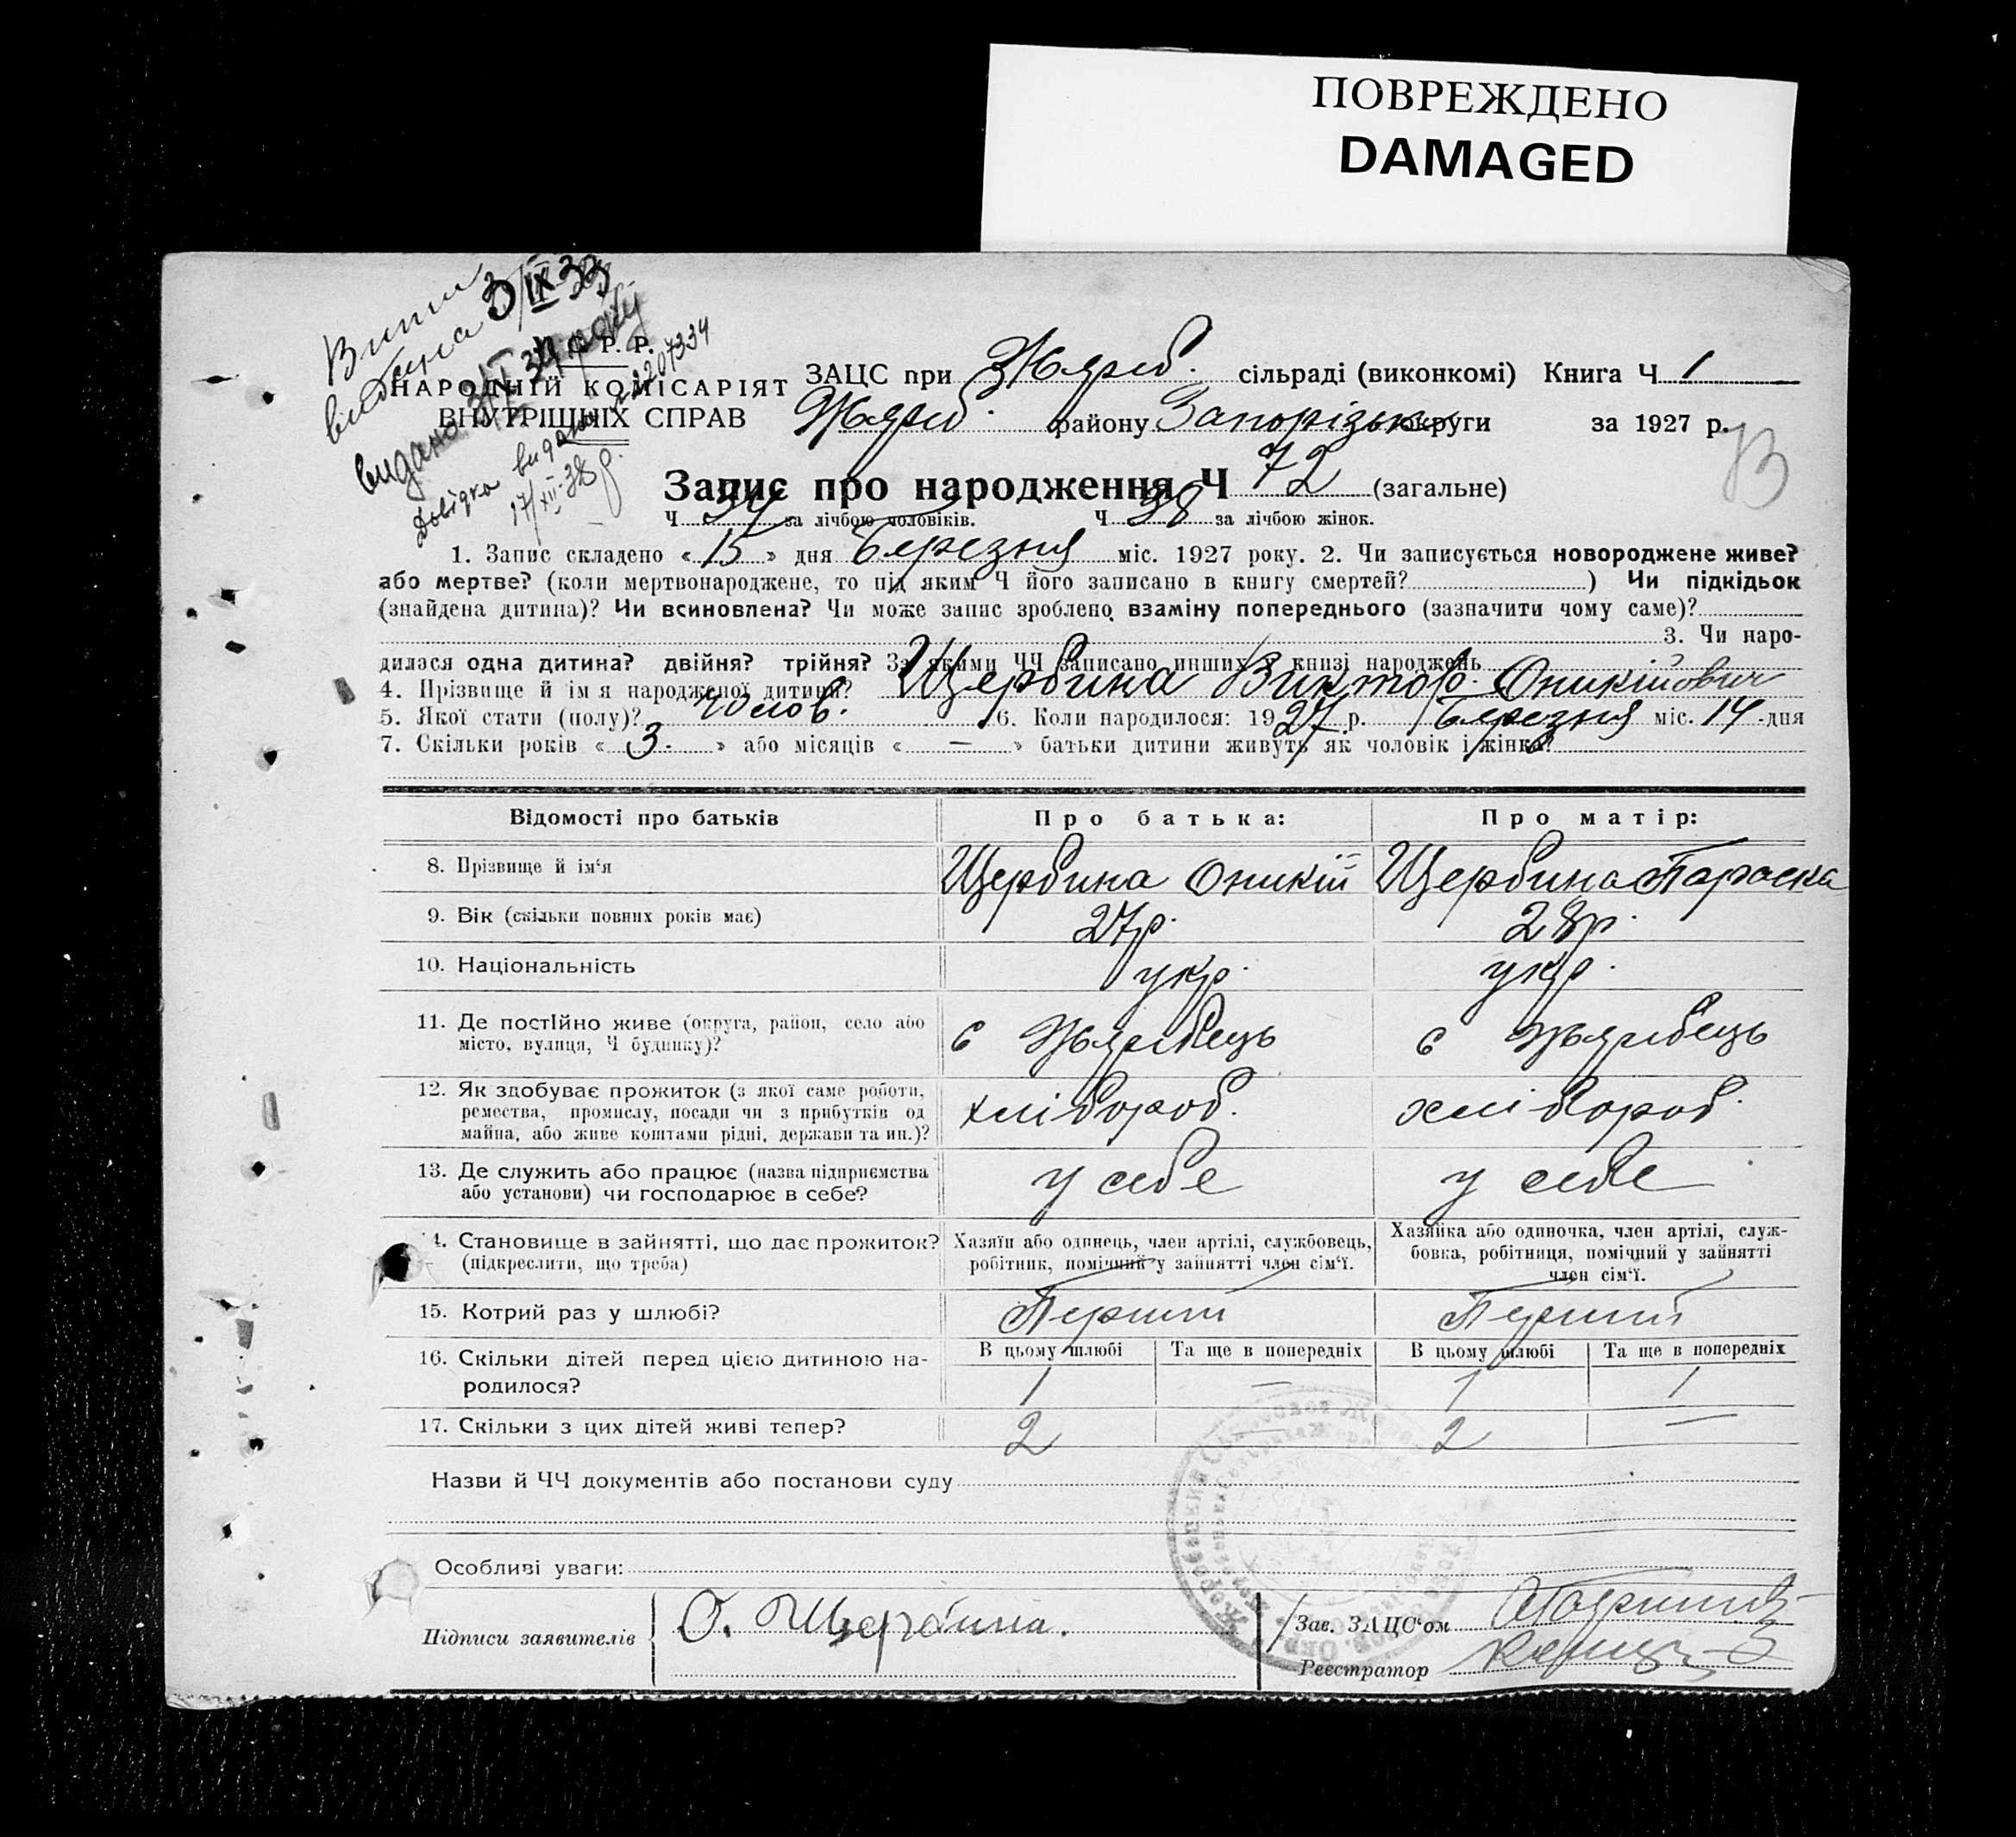 ПОВРЕЖДЕНО
DAMAGED
3/IX 33
Р. Р.
НАРОДНІЙ КОМІСАРІЯТ
ВНУТРІШНІХ СПРАВ
Довідка видана
17/XII-38 р.
ЗАЦС при Жереб. сільраді (виконкомі) Книга Ч 1
Жереб. району Запорізької округи за 1927 р.
Запис про народження Ч 72 (загальне)
Ч 34 за лічбою чоловіків. Ч 38 за лічбою жінок.
1. Запис складено «15» дня Березня міс. 1927 року. 2. Чи записується новороджене живе?
або мертве? (коли мертвонароджене, то під яким Ч його записано в книгу смертей? ) Чи підкідьок
(знайдена дитина)? Чи всиновлена? Чи може запис зроблено взаміну попереднього (зазначити чому саме)?
3. Чи наро-
дилася одна дитина? двійня? трійня? За якими ЧЧ записано инших у книзі народжень
4. Прізвище й ім'я народженої дитини? Щербина Виктор Оникійович
5. Якої стати (полу)? Чолов. 6. Коли народилося: 1927 р. Березня міс. 14 дня
7. Скільки років «3» або місяців «—» батьки дитини живуть як чоловік і жінка?
Відомості про батьків Про батька: Про матір:
8. Прізвище й ім'я Щербина Оникій Щербина Параска
9. Вік (скільки повних років має) 27р. 28р.
10. Національність укр. укр.
11. Де постійно живе (округа, район, село або
місто, вулиця, Ч будинку)? с Жеребець с Жеребець
12. Як здобуває прожиток (з якої саме роботи,
ремества, промислу, посади чи з прибутків од
майна, або живе коштами рідні, держави та ин.)? хлібороб. хлібороб.
13. Де служить або працює (назва підприємства
або установи) чи господарює в себе? у себе у себе
14. Становище в зайнятті, що дає прожиток?
(підкреслити, що треба)
Хазяїн або одинець, член артілі, службовець,
робітник, помічний у зайнятті член сім'ї.
Хазяйка або одиночка, член артілі, служ-
бовка, робітниця, помічний у зайнятті
член сім'ї.
15. Котрий раз у шлюбі? Перший Перший
В цьому шлюбі Та ще в попередніх В цьому шлюбі Та ще в попередніх
16. Скільки дітей перед цією дитиною на-
родилося? 1 — 1 1
17. Скільки з цих дітей живі тепер? 2 2 —
Назви й ЧЧ документів або постанови суду
Особливі уваги:
Підписи заявителів О. Щербина.
Зав. ЗАЦС'ом
Реєстратор